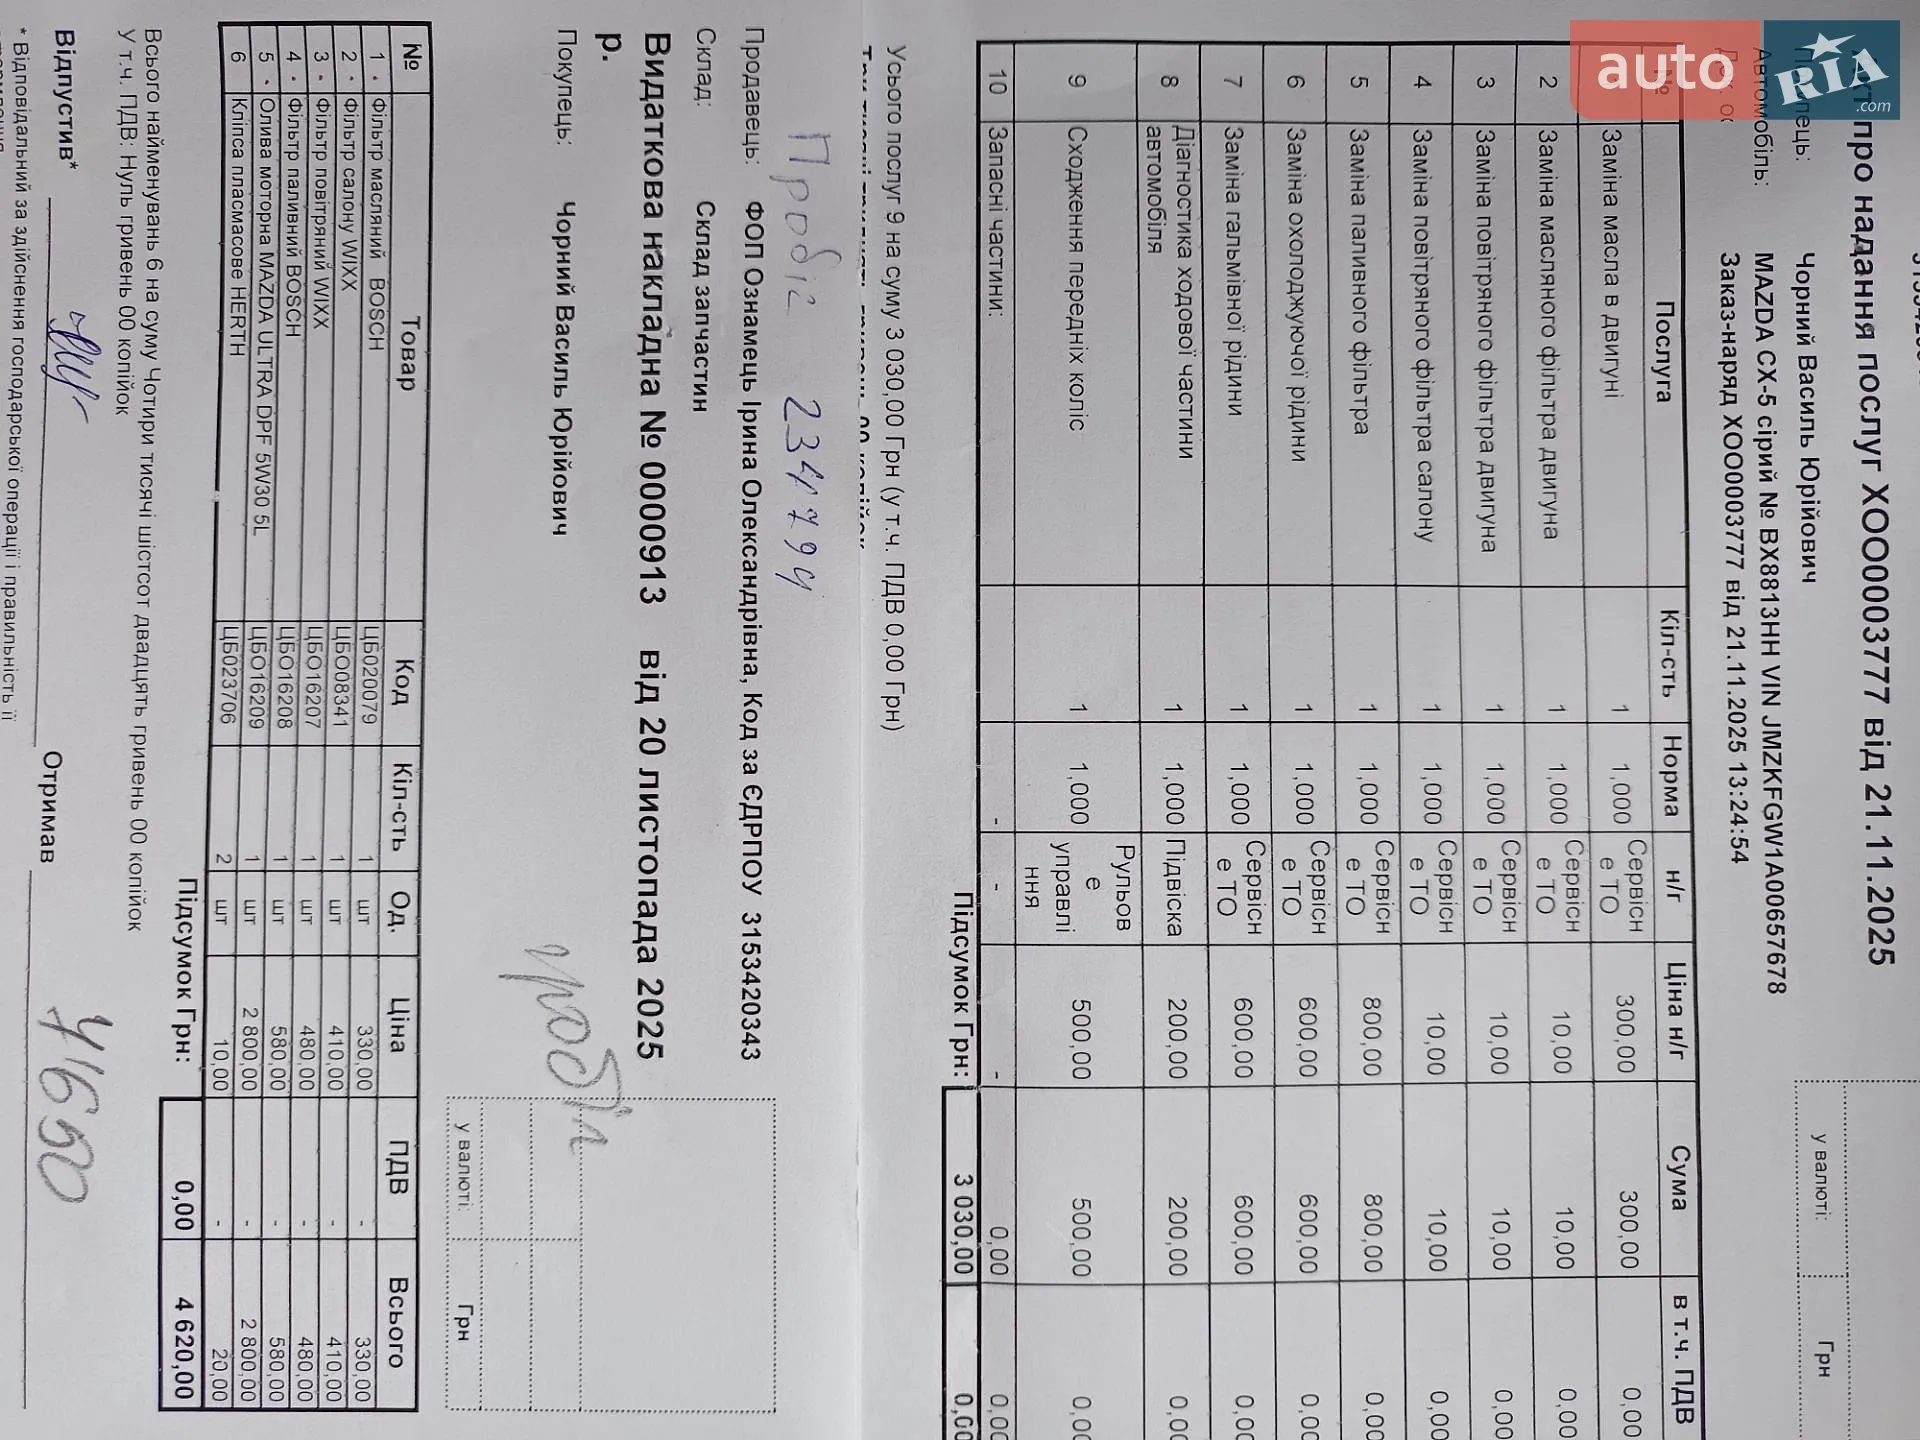 Акт про надання послуг ХОО0003777 від 21.11.2025
у валюті: Грн
Чорний Василь Юрійович
Автомобіль: MAZDA CX-5 сірий № BX8813HH VIN JMZKFGW1A00657678
Заказ-наряд ХОО0003777 від 21.11.2025 13:24:54
№ Послуга Кіл-сть Норма н/г Ціна н/г Сума в т.ч. ПДВ
Заміна масла в двигуні 1 1,000 Сервісне ТО 300,00 300,00 0,00
2 Заміна масляного фільтра двигуна 1 1,000 Сервісне ТО 10,00 10,00 0,00
3 Заміна повітряного фільтра двигуна 1 1,000 Сервісне ТО 10,00 10,00 0,00
4 Заміна повітряного фільтра салону 1 1,000 Сервісне ТО 10,00 10,00 0,00
5 Заміна паливного фільтра 1 1,000 Сервісне ТО 800,00 800,00 0,00
6 Заміна охолоджуючої рідини 1 1,000 Сервісне ТО 600,00 600,00 0,00
7 Заміна гальмівної рідини 1 1,000 Сервісне ТО 600,00 600,00 0,00
8 Діагностика ходової частини автомобіля 1 1,000 Підвіска 200,00 200,00 0,00
9 Сходження передніх коліс 1 1,000 Рульове управління 500,00 500,00 0,00
10 Запасні частини: - - - 0,00 0,00
Підсумок Грн: 3 030,00 0,00
Усього послуг 9 на суму 3 030,00 Грн (у т.ч. ПДВ 0,00 Грн)
Пробіг 234799
Продавець: ФОП Ознамець Ірина Олександрівна, Код за ЄДРПОУ 3153420343
Склад: Склад запчастин
Видаткова накладна № 0000913 від 20 листопада 2025
р.
Покупець: Чорний Василь Юрійович
у валюті: Грн
№ Товар Код Кіл-сть Од. Ціна ПДВ Всього
1 Фільтр масляний BOSCH ЦБ020079 1 шт 330,00 - 330,00
2 Фільтр салону WIXX ЦБО08341 1 шт 410,00 - 410,00
3 Фільтр повітряний WIXX ЦБО16207 1 шт 480,00 - 480,00
4 Фільтр паливний BOSCH ЦБО16208 1 шт 580,00 - 580,00
5 Олива моторна MAZDA ULTRA DPF 5W30 5L ЦБО16209 1 шт 2 800,00 - 2 800,00
6 Кліпса пласмасове HERTH ЦБ023706 2 шт 10,00 - 20,00
Підсумок Грн: 0,00 4 620,00
Всього найменувань 6 на суму Чотири тисячі шістсот двадцять гривень 00 копійок
У т.ч. ПДВ: Нуль гривень 00 копійок
Відпустив* Отримав
7650
* Відповідальний за здійснення господарської операції і правильність її
auto RIA .com